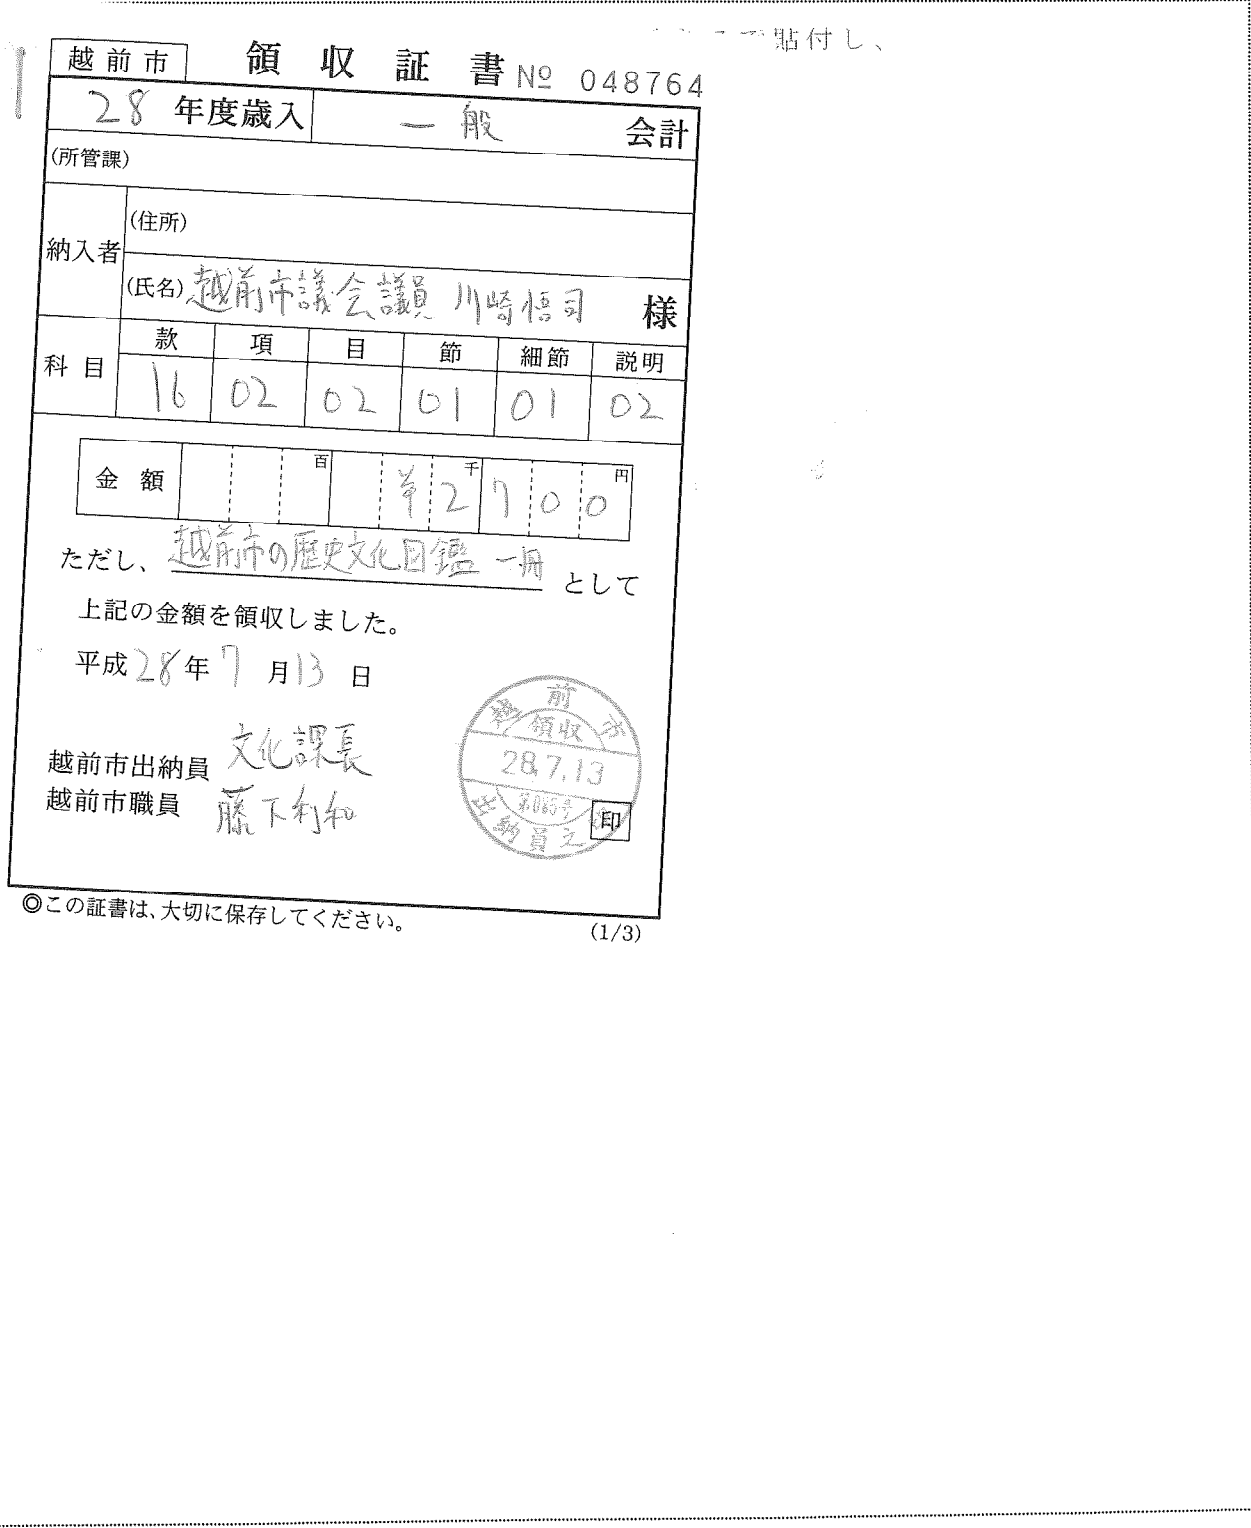 で貼付し、
越前市 領収証書 № 048764
28年度歳入 一般 会計
(所管課)
納入者 (住所)
(氏名) 越前市議会議員 川崎悟司 様
科目 款 項 目 節 細節 説明
16 02 02 01 01 02
金額 百 千 円
¥2700
ただし、越前市の歴史文化図鑑 一冊 として
上記の金額を領収しました。
平成28年7月13日
越前市出納員 文化課長
越前市職員 藤下利和
越前市
領収
28.7.13
第065号
出納員之
印
◎この証書は、大切に保存してください。
(1/3)